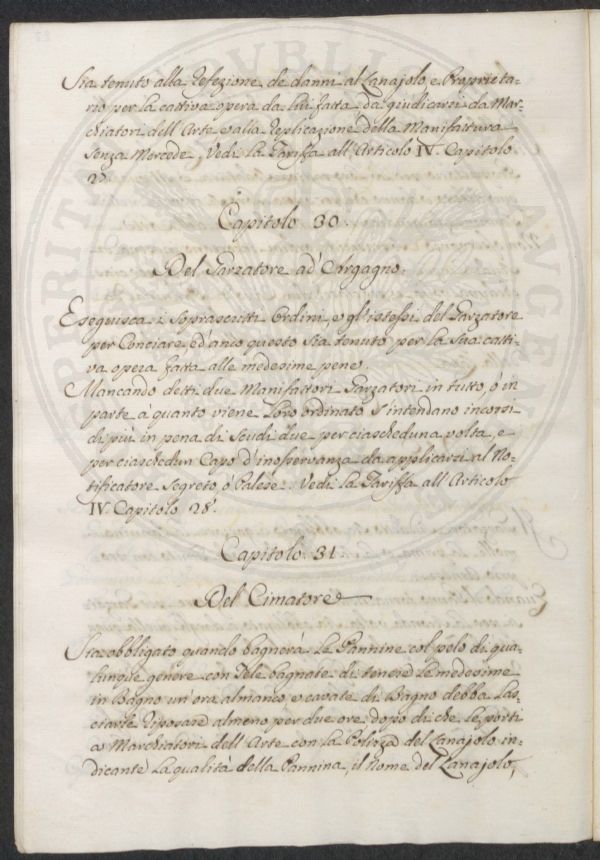 Sia tenuto alla Refezione de danni al Lanajolo e Proprieta=
rio per la cattiva opera da lui fatta da giudicarsi da Mar=
chiatori dell'Arte e alla Replicazione della Manifattura
senza Mercede, Vedi la Tariffa all'Articolo IV. Capitolo
27.
Capitolo 30.
Del Garzatore ad'Argagno.
Eseguisca i Soprascritti Ordini, e gl'istessi del Garzatore
per Conciare ed anco questo Sia tenuto per la Sua catti=
va opera fatta alle medesime pene.
Mancando detti due Manifattori Garzatori in tutto, ò in
parte à quanto viene Loro ordinato S'intendano incorsi
di più in pena di Scudi due per ciascheduna volta, e
per ciaschedun Capo d'inosservanza da applicarsi al No=
tificatore Segreto, ò Palese. Vedi la Tariffa all'Articolo
IV. Capitolo 28.
Capitolo 31.
Del Cimatore
Sia obbligato quando bagnerà le Pannine col pelo di qua=
lunque genere con Tele bagnate di tenere Le medesime
in Bagno un'ora almanco e cavate di Bagno debba Las=
ciarle Riposare almeno per due ore dopo di che le porti
a Marchiatori dell'Arte con la Polizza del Lanajolo in=
dicante La qualità della Pannina, il nome del Lanajolo,
PERITA
PUBLIC
AUGEN